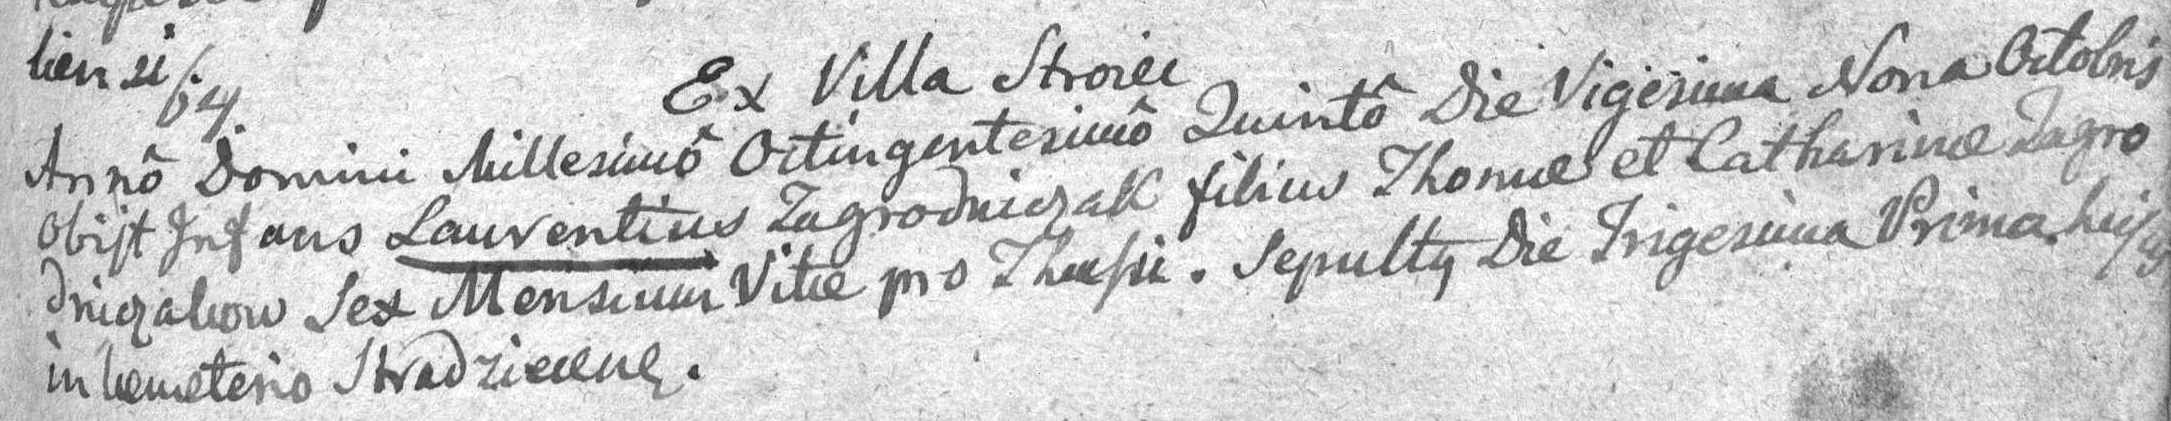 lien si
64
Ex Villa Stroiec
Annô Domini Millesimô Octingentesimô Quintô Die Vigesima Nona Octobris
Obijt Infans Laurentius Zagrodniczak filius Thomae et Catharinae Zagro
dniczakow Sex Mensium Vitae pro Sepultq Die Trigesima Prima
in Cemeterio